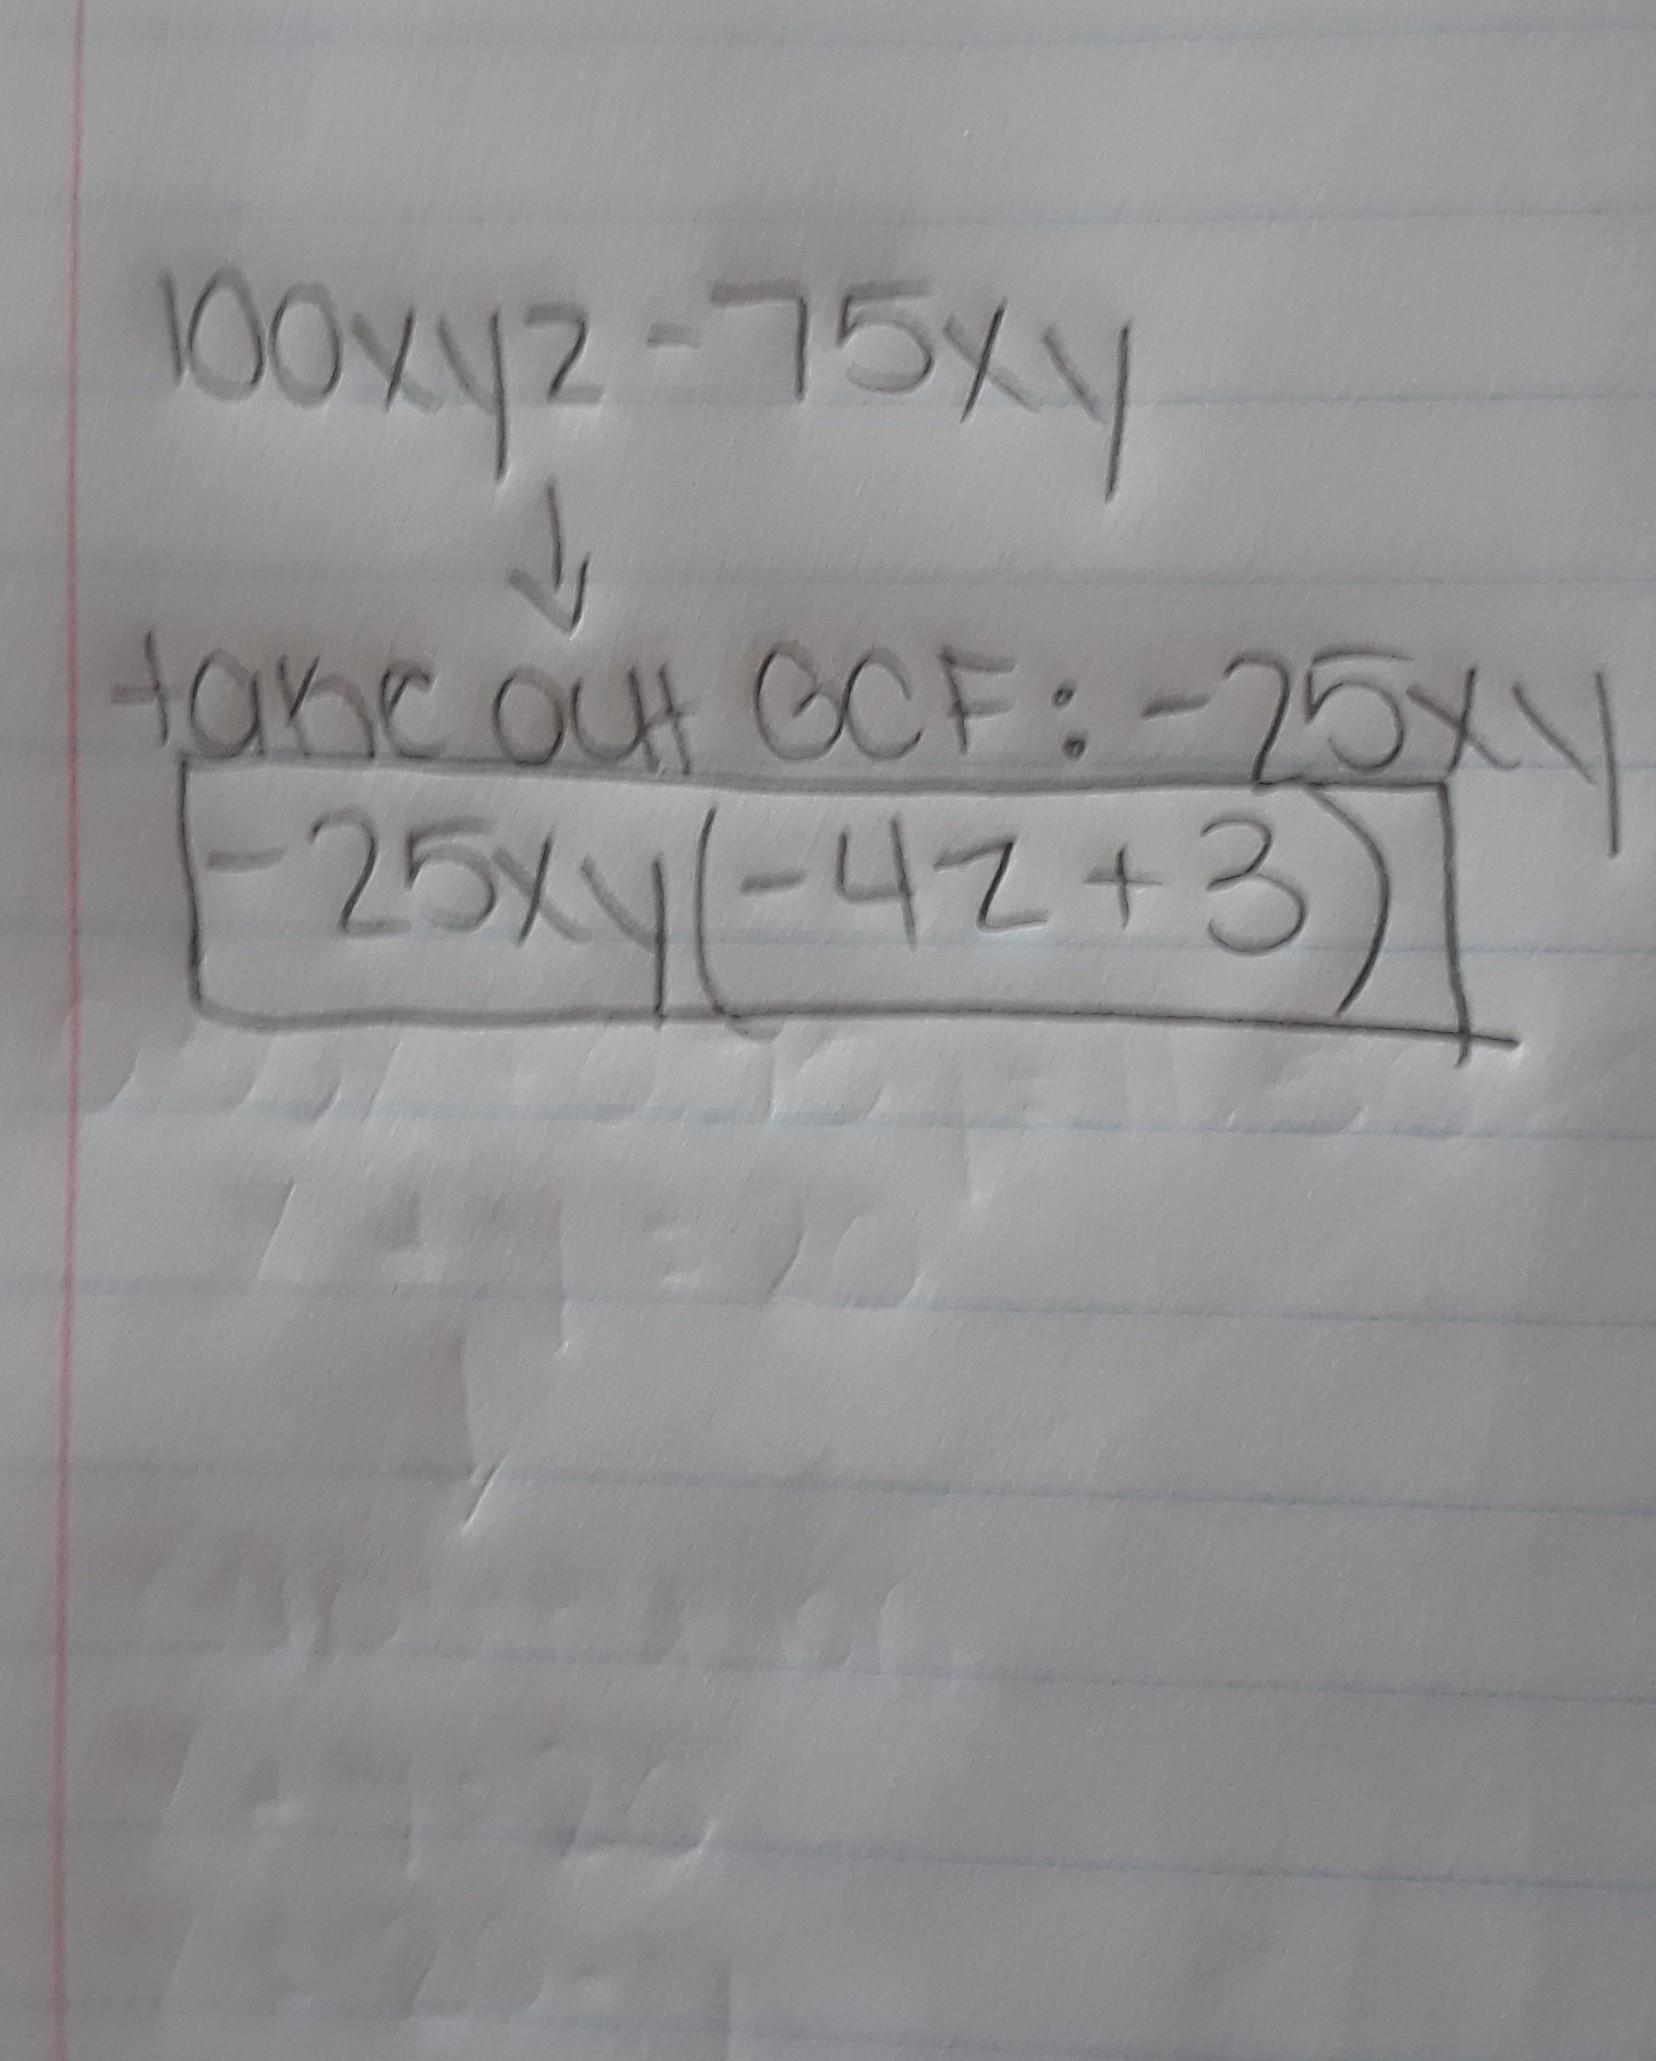 100xyz - 75xy
↓
take out GCF: -25xy
-25xy(-4z+3)